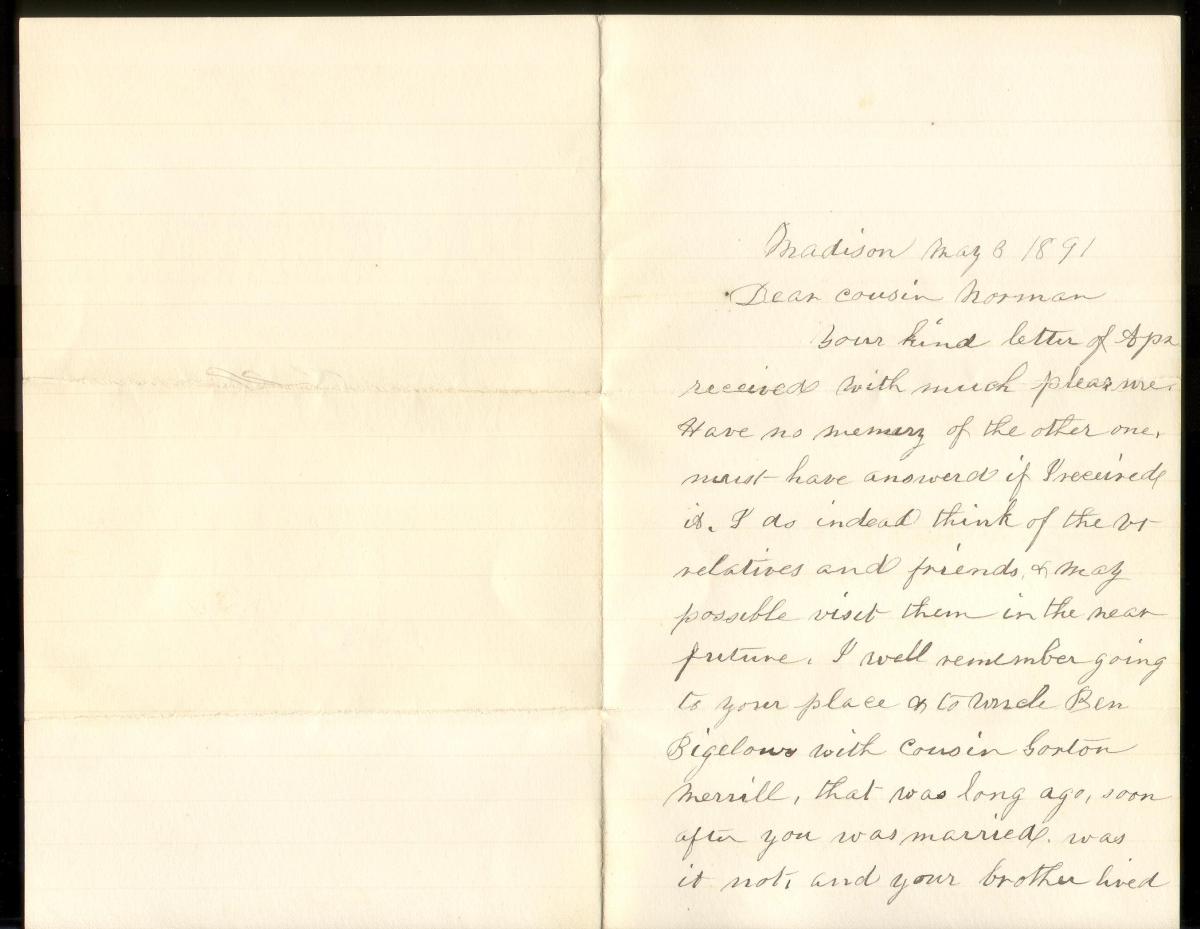 Madison May 3 1891
Dear cousin Norman
Your kind letter of Apr
received with much pleasure.
Have no memery of the other one,
must have answerd if I received
it. I do indead think of the vt
relatives and friends, & may
possible visit them in the near
future. I well remember going
to your place & to Uncle Ben
Bigelows with Cousin Gorton
Merrill, that was long ago, soon
after you was married. was
it not, and your brother lived